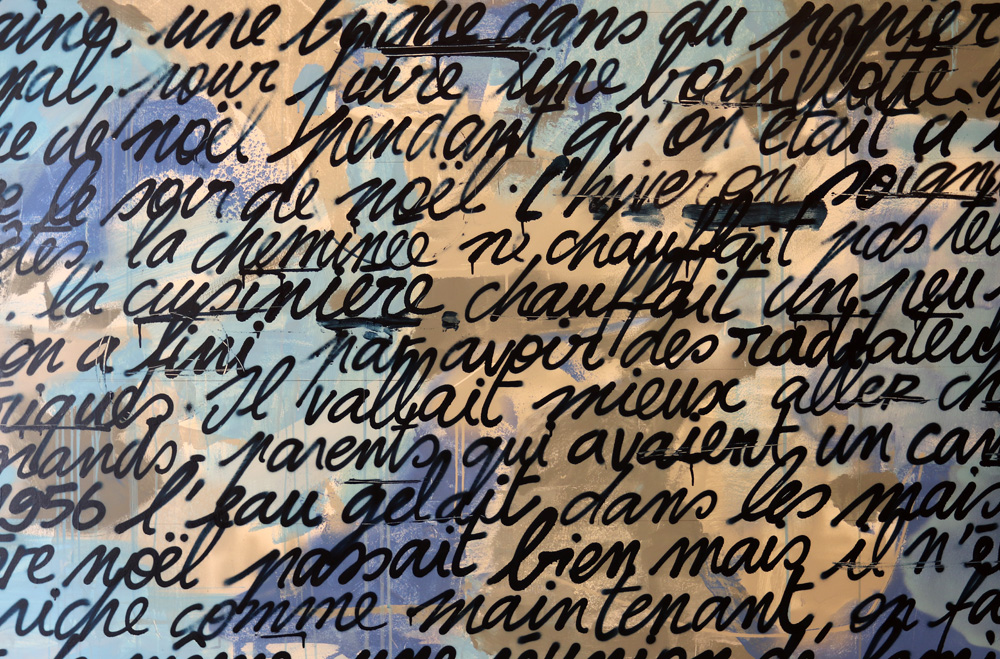 une brique dans du papier
pour faire une bouillotte.
de noël pendant qu'on était à
le soir de noël. L'hiver on soign
la cheminée ne chauffait pas
la cuisinière chauffait un peu.
on a fini par avoir des radiateu
riques. Il vallait mieux aller ch
grands. parents qui avaient un
1956 l'eau geldit dans les mais
re noël passait bien mais il n'é
riche comme maintenant, on fa
une réunion de